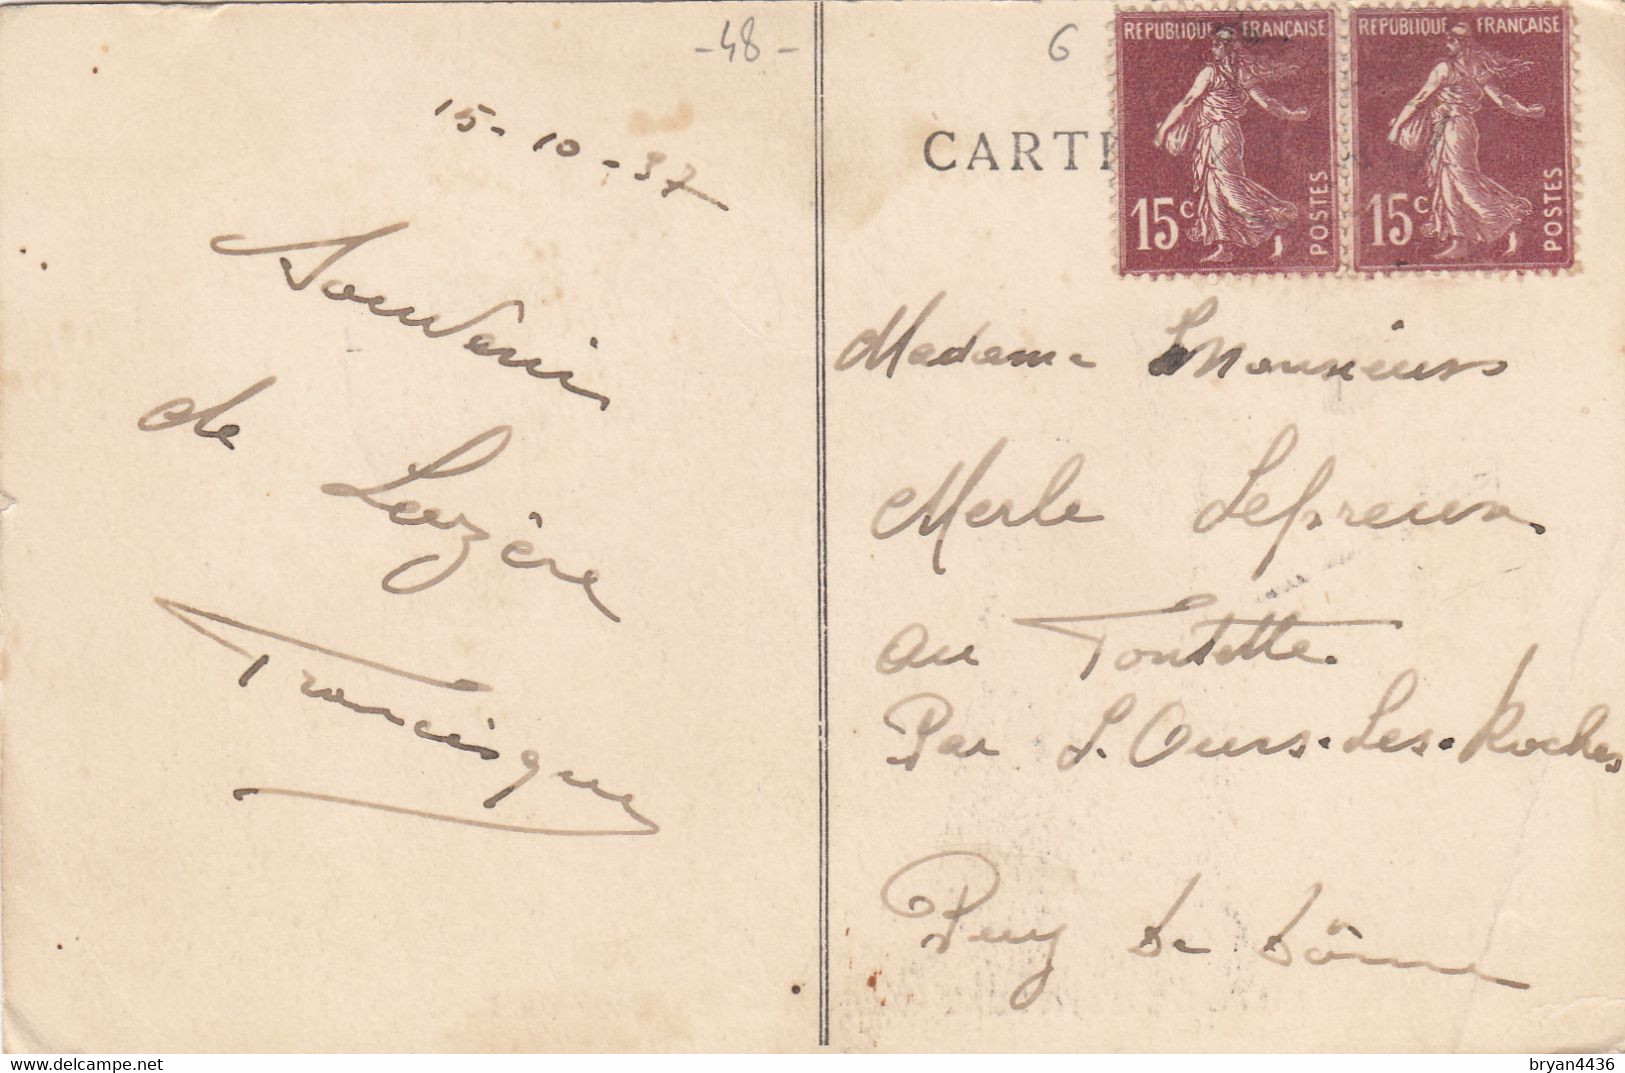 -48-
6
15-10-37
Souvenir
de
Lozère
Francisque
CARTE
REPUBLIQUE FRANÇAISE
15c
POSTES
REPUBLIQUE FRANÇAISE
15c
POSTES
Madame Monsieur
Merle Lepreux
au Toutette
Par S. Ours-Les-Roches
Puy de Dôme
bryan4436